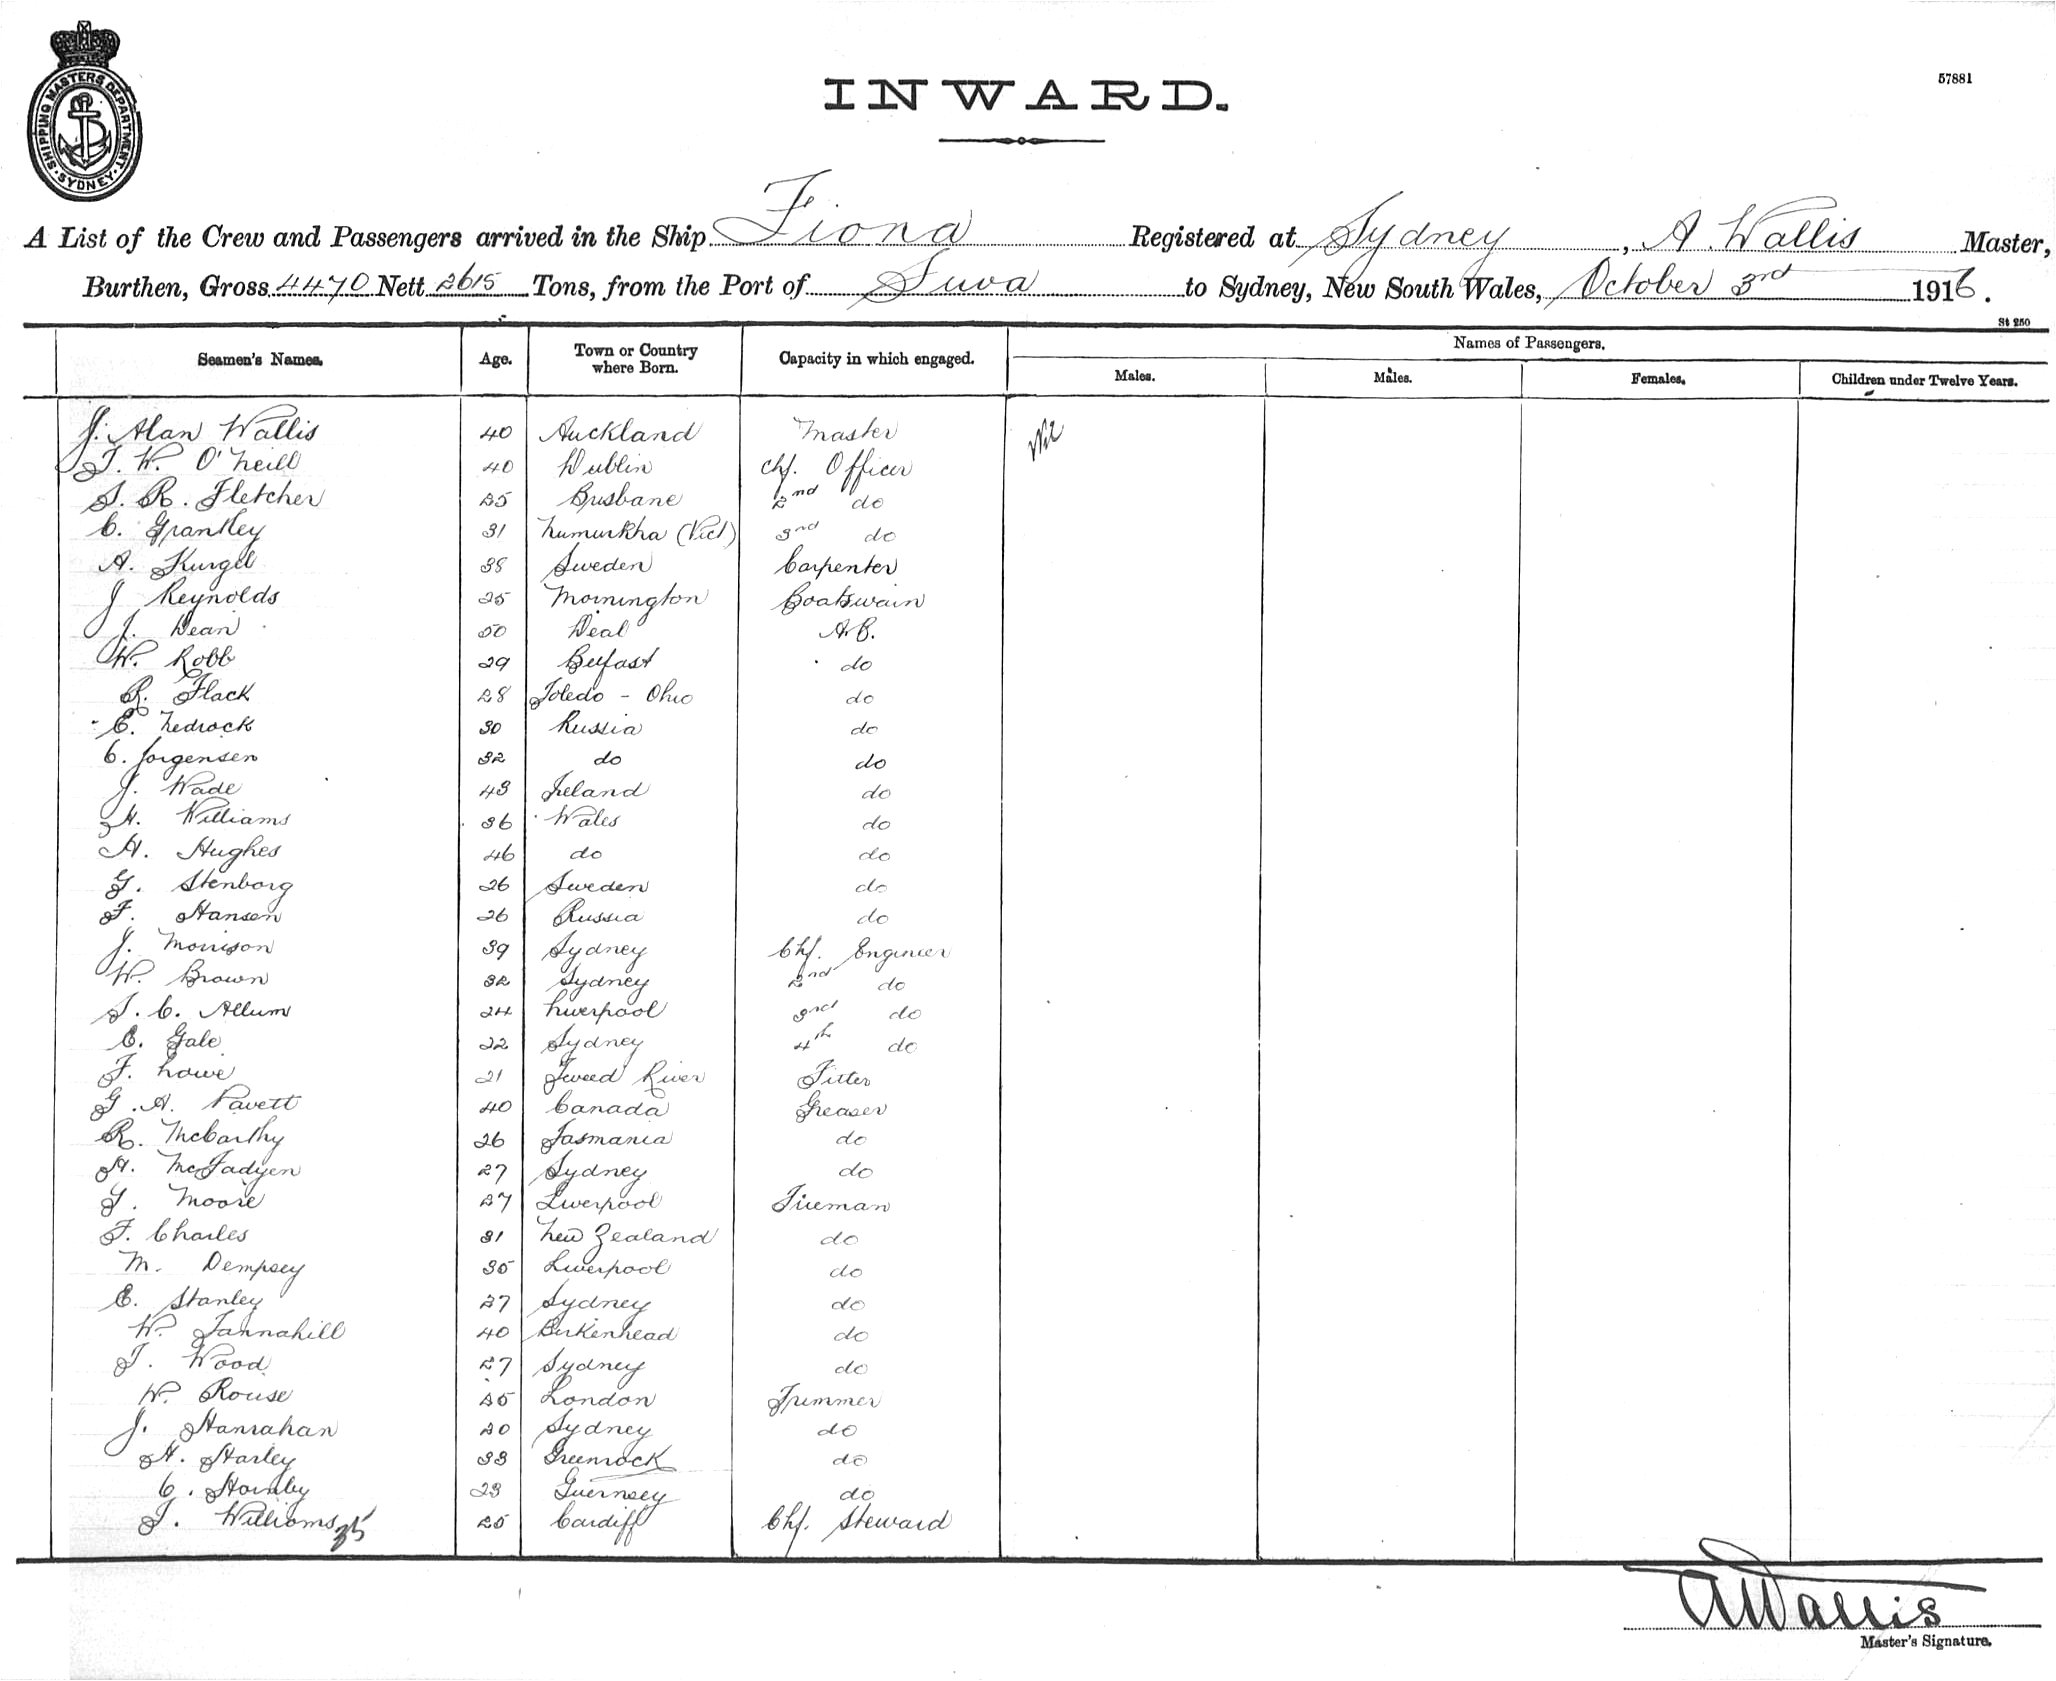 SHIPPING MASTERS DEPARTMENT
SYDNEY
57881
INWARD.
A List of the Crew and Passengers arrived in the Ship Fiona Registered at Sydney, A. Wallis Master,
Burthen, Gross 4470 Nett 2615 Tons, from the Port of Suva to Sydney, New South Wales, October 3rd 1916.
St 250
Seamen's Names. Age. Town or Country where Born. Capacity in which engaged. Names of Passengers.
Males. Males. Females. Children under Twelve Years.
J. Alan Wallis 40 Auckland Master Nil
T. W. O'Neill 40 Dublin Chf. Officer
S. R. Fletcher 25 Brisbane 2nd do
C. Grantley 31 Numurkha (Vict) 3rd do
A. Kurgel 38 Sweden Carpenter
J Reynolds 25 Mornington Boatswain
J. Dean 50 Deal A.B.
W. Robb 29 Belfast do
R. Flack 28 Toledo - Ohio do
C. Nedrock 30 Russia do
C. Jorgensen 32 do do
J. Wade 43 Ireland do
H. Williams 36 Wales do
H. Hughes 46 do do
G. Stenborg 26 Sweden do
F. Hansen 26 Russia do
J. Morrison 39 Sydney Chf. Engineer
W. Brown 32 Sydney 2nd do
T. C. Allum 24 Liverpool 3rd do
C. Gale 22 Sydney 4th do
F. Lowe 21 Tweed River Fitter
G. A. Pavett 40 Canada Greaser
R. McCarthy 26 Tasmania do
H. McFadyen 27 Sydney do
G. Moore 27 Liverpool Fireman
F. Charles 31 New Zealand do
M. Dempsey 35 Liverpool do
E. Stanley 27 Sydney do
W. Tannahill 40 Birkenhead do
T. Wood 27 Sydney do
W. Rouse 25 London Trimmer
J. Hanrahan 20 Sydney do
H. Harley 33 Greenock do
C. Hornby 23 Guernsey do
T. Williams 35 25 Cardiff Chf. Steward
A Wallis
Master's Signature.